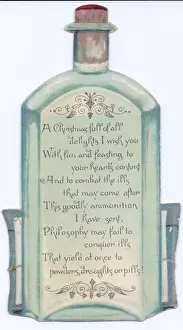 A Christmas full of all
delights I wish you
With fun and feasting to
your hearts content
And to combat the ills
that may come after
This goodly ammunition
I have sent,
Philosophy may fail to
conquer ills
That yield at once to
powders, draughts or pills!